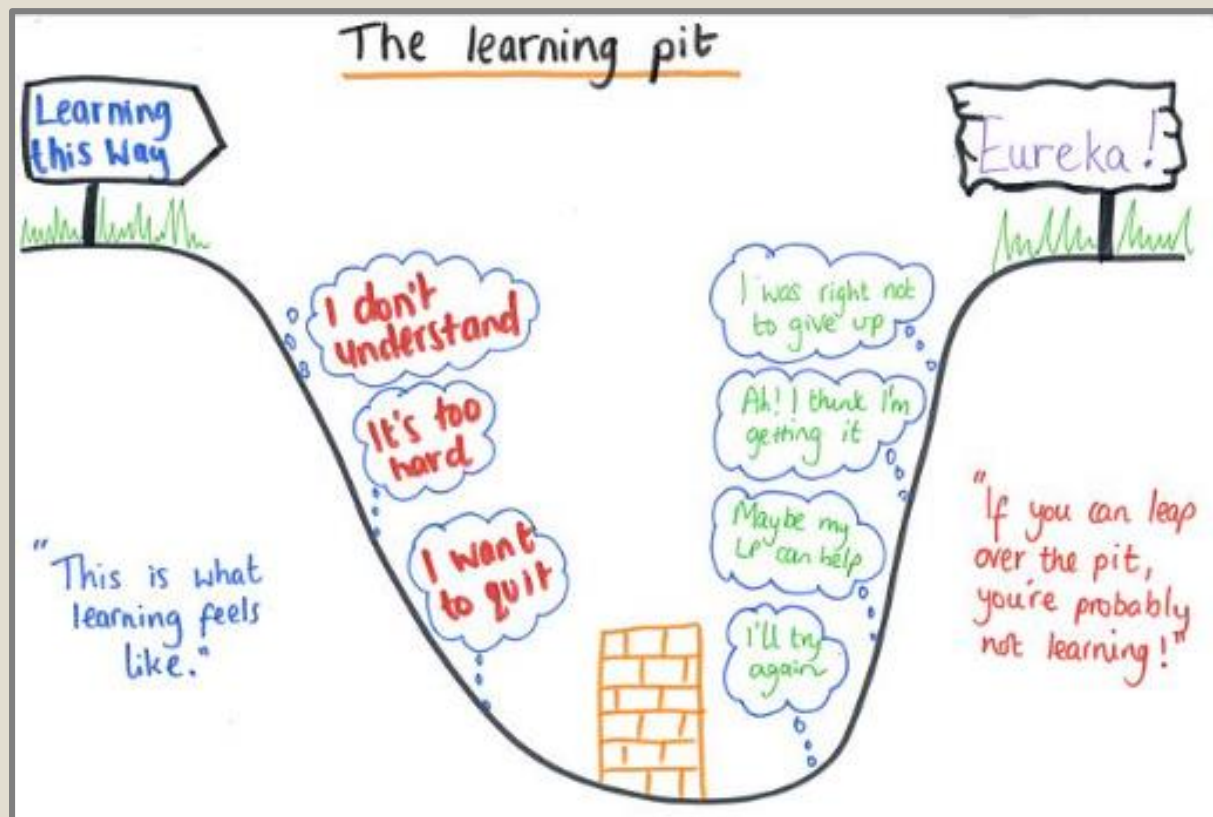 The learning pit
Learning
this Way
Eureka!
I don't
understand
It's too
hard
I want
to quit
I was right not
to give up
Ah! I think I'm
getting it
Maybe my
LP can help
I'll try
again
"This is what
learning feels
like."
"If you can leap
over the pit,
you're probably
not learning!"